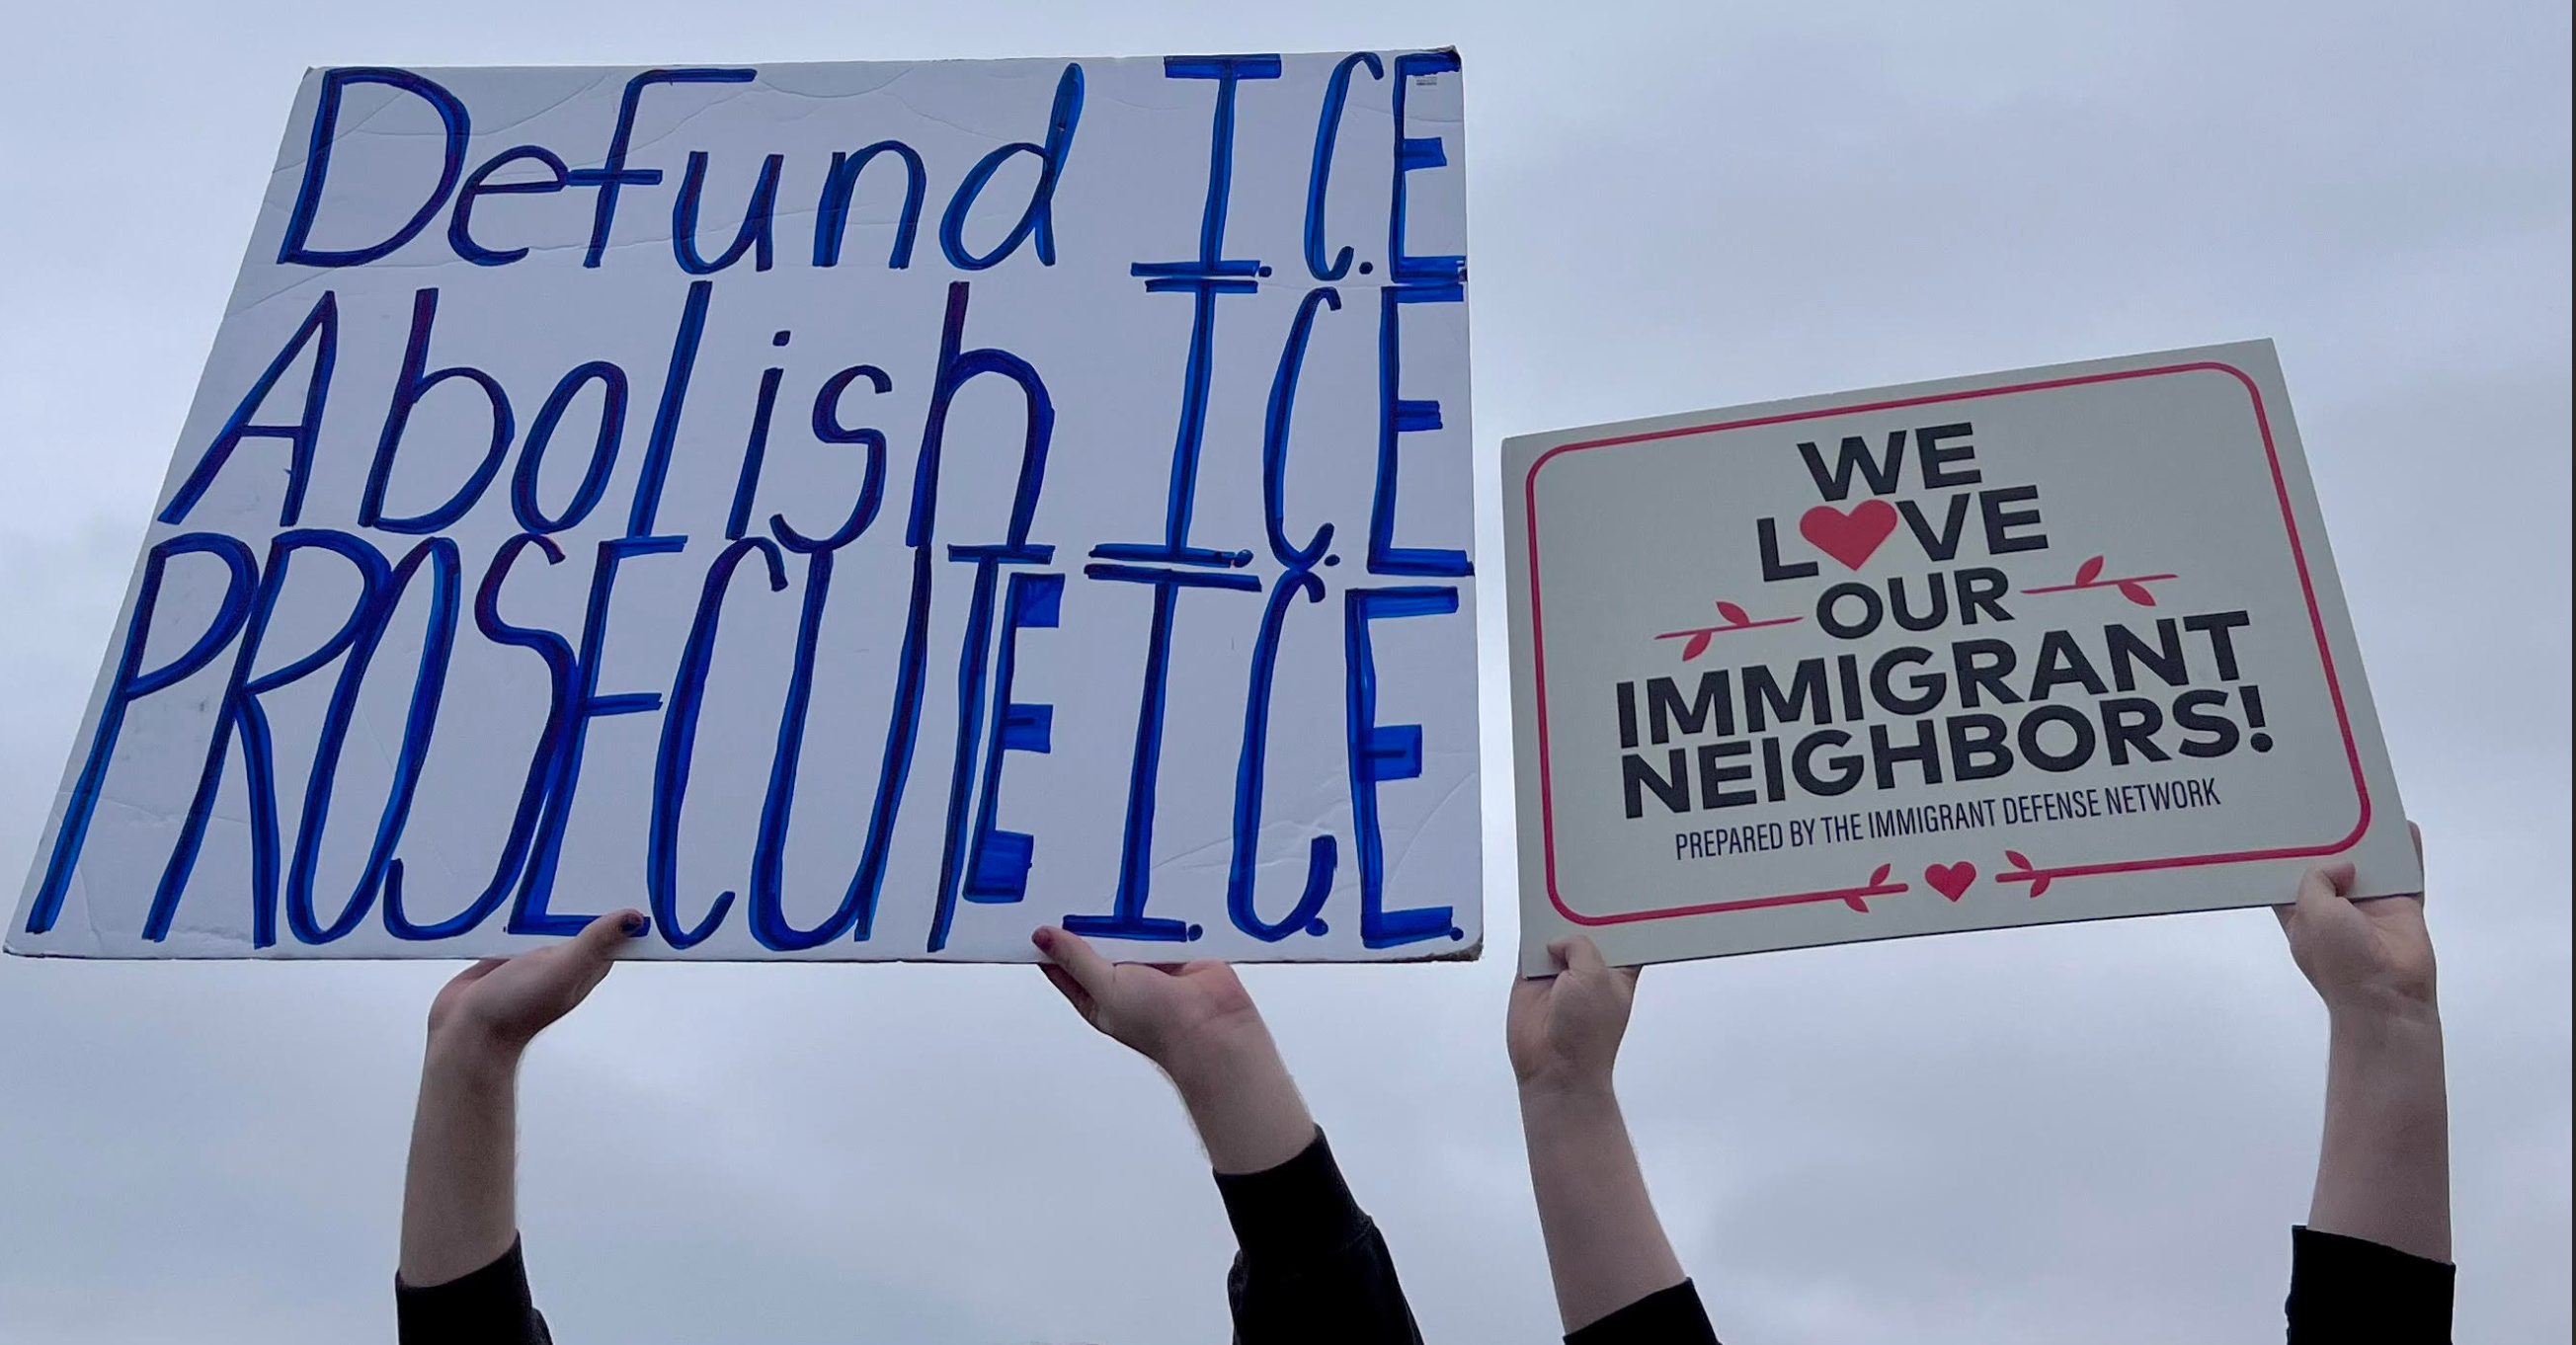 Defund I.C.E
Abolish I.C.E
PROSECUTE I.C.E.
WE
L❤VE
OUR
IMMIGRANT
NEIGHBORS!
PREPARED BY THE IMMIGRANT DEFENSE NETWORK